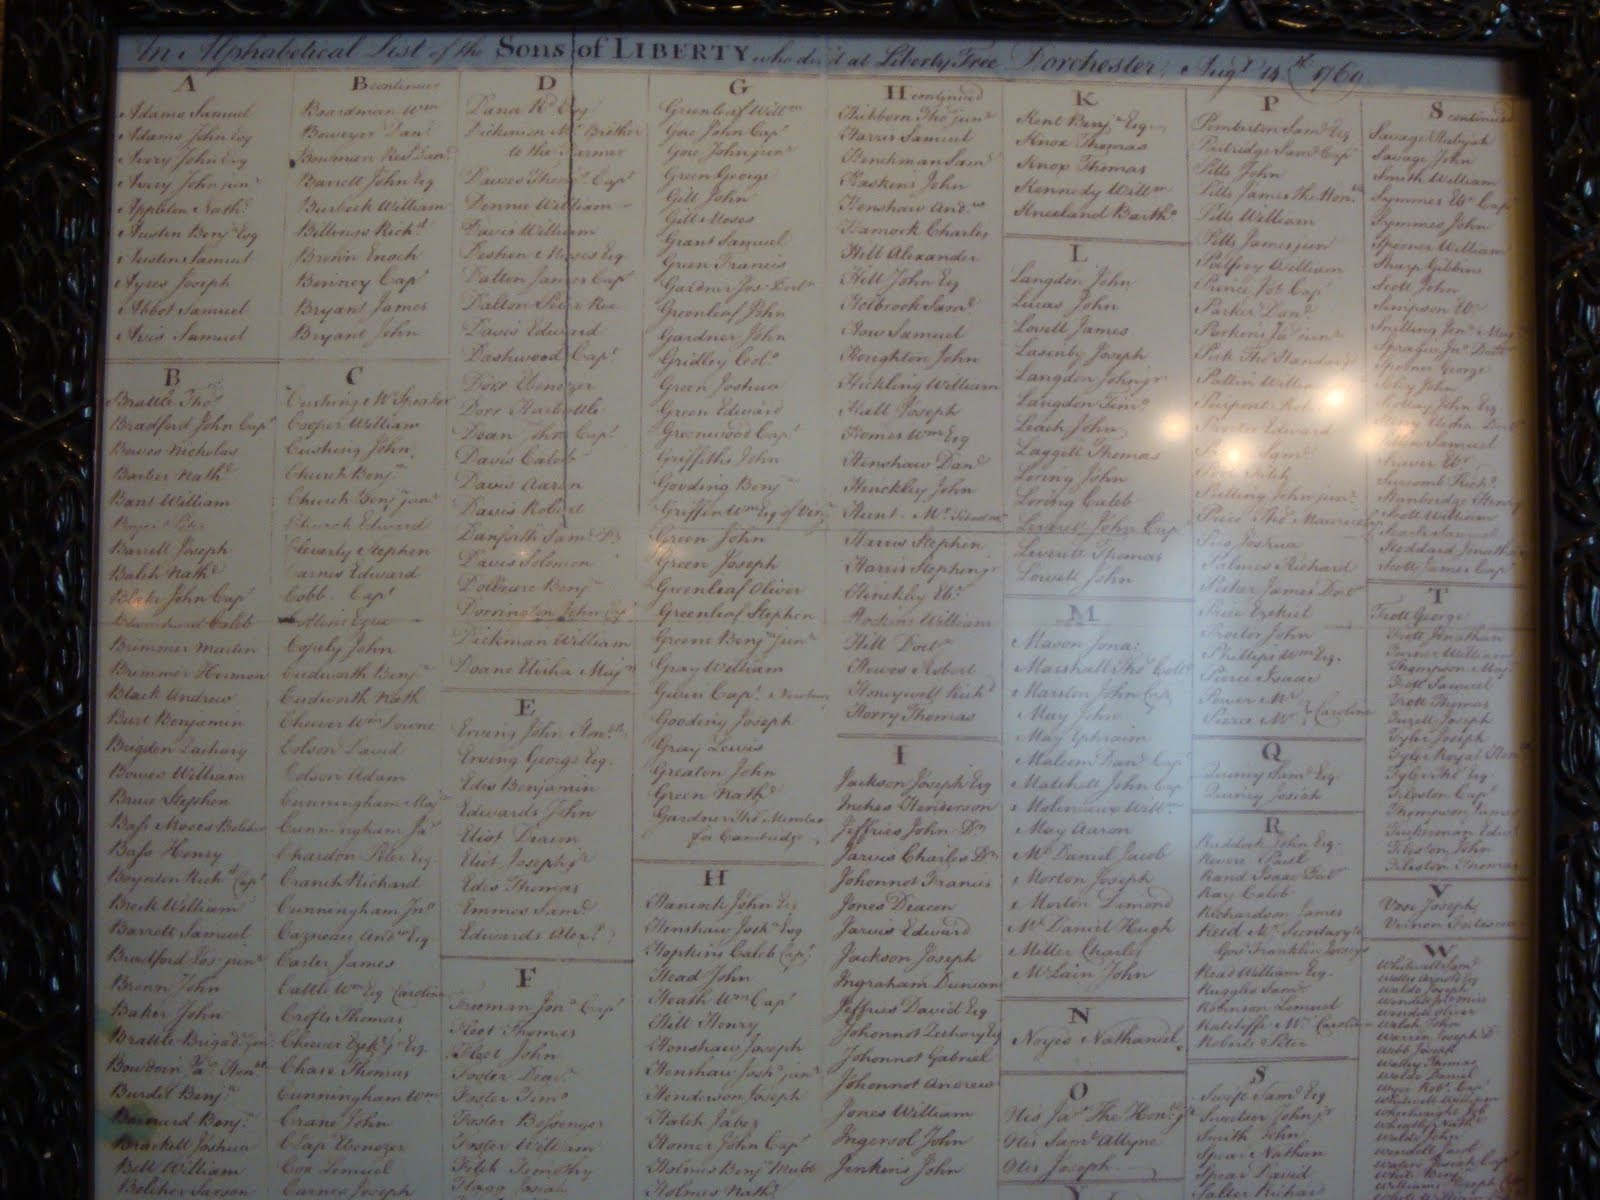 An Alphabetical List of the Sons of LIBERTY who din'd at Liberty Tree Dorchester, Augt 14th 1769
A
Adams Samuel
Adams John Esq
Avery John Esq
Avery John junr
Appleton Nathl
Austin Benjn Esq
Austin Samuel
Ayres Joseph
Abbot Samuel
Avis Samuel
B
Brattle Thos
Bradford John Capt
Bowes Nicholas
Barber Nathl
Bant William
Barrett Joseph
Balch Nathl
Blake John Capt
Caleb
Brimmer Martin
Brimmer Herman
Black Andrew
Burt Benjamin
Brigden Zachary
Bowes William
Bruce Stephen
Bass Moses Belcher
Bass Henry
Boynton Richd Capt
Breck William
Barrett Samuel
Bradford Jos junr
Brown John
Baker John
Brattle Brigadr
Bowdoin Ja Honble
Burdet Benjn
Barnard Benjn
Brackett Joshua
Bell William
Belcher Sarson
B continued
Boardman Wm
Bowman Revd
Barrett John Esq
Burbeck William
Billings Richd
Brown Enoch
Bonney Capt
Bryant James
Bryant John
C
Cushing Mr Speaker
Cooper William
Cushing John
Church Benjn
Church Benjn junr
Church Edward
Cleverly Stephen
Carnes Edward
Cobb Capt
Collins Ezra
Copely John
Cudworth Benjn
Cudworth Nath
Cheever Wm Downe
Colson David
Colson Adam
Cunningham Majr
Cunningham Jas
Chardon Peter Esq
Cranch Richard
Cunningham Jno
Cazneau Andw Esq
Carter James
Cattle Wm Esq Carolina
Crafts Thomas
Cheever Ezekl jr Esq.
Chase Thomas
Cunningham Wm
Crane John
Clap Ebenezer
Cox Lemuel
Carnes Joseph
D
Dana Rd Esq
Dickinson Mr Brother
to the Farmer
Dawes Thoms Capt
Dennie William
Davis William
Deshon Moses Esq
Dalton James Capt
Dalton Peter Roe
Davis Edward
Dashwood Capt
Dorr Ebenezer
Dorr Harbottle
Doan John Capt
Davis Caleb
Davis Aaron
Davis Robert
Danforth Saml
Davis Solomon
Dolbeare Benjn
Dorrington John Capt
Dickman William
Doane Elisha Majr
E
Erving John Honble
Erving George Esq.
Edes Benjamin
Edwards John
Eliot Deacon
Eliot Joseph jr
Edes Thomas
Emmes Saml
Edwards Alexr
F
Freeman Jona Capt
Fleet Thomas
Fleet John
Foster Deacn
Foster Timo
Foster Bossenger
Foster William
Fitch Timothy
Flagg Josiah
G
Greenleaf Willm
Gore John Capt
Gore John junr
Green George
Gill John
Gill Moses
Grant Samuel
Green Francis
Gardner Jos Doctr
Greenleaf John
Gardner John
Gridley Colo
Green Joshua
Green Edward
Greenwood Capt
Griffiths John
Gooding Benjn
Griffin Wm Esq of Virga
Green John
Green Joseph
Greenleaf Oliver
Greenleaf Stephen
Greene Benjn junr
Gray William
Gooding Joseph
Gray Lewis
Greaton John
Green Nathl
Gardner Tho Member
for Cambridge
H
Hancock John Esq
Henshaw Josha Esq
Hopkins Caleb Capt
Head John
Heath Wm Capt
Hill Henry
Henshaw Joseph
Henshaw Josh junr
Henderson Joseph
Hatch Jabez
Homer John Capt
Holmes Benjn Mubb
Holmes Nathl
H continued
Hichborn Tho junr
Harris Samuel
Henchman Saml
Haskins John
Henshaw Andw
Hamock Charles
Hill Alexander
Hill John Esq
Holbrook Saml
How Samuel
Houghton John
Hickling William
Hall Joseph
Homes Wm Esq
Henshaw Danl
Hinckley John
Hunt Mr
Harris Stephen
Harris Stephen jr
Hinkley Ebr
Hoskins William
Hill Doctr
Hewes Robert
Honeywell Richd
Horry Thomas
I
Jackson Joseph Esq
Inches Henderson
Jeffries John Dr
Jarvis Charles Dr
Johonnot Francis
Jones Deacon
Jarvis Edward
Jackson Joseph
Ingraham Duncan
Jeffries David Esq
Johonnot Zachary Esq
Johonnot Gabriel
Johonnot Andrew
Jones William
Ingersol John
Jenkins John
K
Kent Benjn Esq
Knox Thomas
Knox Thomas
Kennedy Willm
Kneeland Bartho
L
Langdon John
Lucas John
Lovell James
Lasinby Joseph
Langdon John jr
Langdon Timo
Leach John
Laggett Thomas
Loring John
Loring Caleb
Leverett John Capt
Leverett Thomas
Lowell John
M
Mason Jona
Marshall Tho Collo
Marston John Capt
May John
May Ephraim
Malcom Danl Capt
Matchett John Capt
Molineux Willm
May Aaron
McDaniel Jacob
Morton Joseph
Morton Dimond
McDaniel Hugh
Miller Charles
McLain John
N
Noyes Nathaniel
O
Otis Jas The Honble
Otis Saml Allyne
Otis Joseph
P
Pemberton Saml Esq
Partridge Saml Capt
Pitts John
Pitts James the Honble
Pitts William
Pitts James junr
Palfrey William
Pierce Jos Capt
Parker Danl
Perkins Jas junr
Peck Tho Handasyd
Palfrey William
Pierpont Robt
Proctor Edward
Saml
Pulling John junr
Price Tho Maurice
Pico Joshua
Palmes Richard
Parker James Doctr
Price Ezekiel
Proctor John
Phillips Wm Esq.
Pierce Isaac
Power Mr
Pierce Mr } Carolina
Q
Quincy Saml Esq.
Quincy Josiah
R
Ruddock John Esq.
Revere Paul
Rand Isaac Doctr
Ray Caleb
Richardson James
Reed Mr Secretary to
Govr Franklin Jerseys
Read William Esq.
Ruggles Saml
Robinson Lemuel
Ratcliffe Mr Carolina
Roberts Peter
S
Swift Saml Esq
Sweetser John jr
Smith John
Spear Nathan
Spear David
Salter Richard
S continued
Savage Habijah
Savage John
Smith William
Symmes Ebr Capt
Symmes John
Spooner William
Sharp Gibbins
Scott John
Simpson Ebr
Snelling Jona Majr
Sprague Jno Doctr
Spooner George
Soley John
Scollay John Esq
Story Elisha Doctr
Samuel
Seaver Ebr
Surcomb Richd
Stanbridge Henry
Scott William
Stoddard Jonathan
Scott James Capt
T
Trott George
Trott Jonathan
Turner William
Thompson Majr
Trott Samuel
Trott Thomas
Tuzell Joseph
Tyler Joseph
Tyler Royal Honble
Tyler Tho Esq
Tileston Capt
Thompson James
Tuckerman Edwd
Tileston John
Tileston Thomas
V
Vose Joseph
Vernon Fortescue
W
Whitwell Saml
Welles Arnold Esq
Waldo Joseph
Wendell Oliver
Walsh John
Warren Joseph Dr
Webb Joseph
Walley Thomas
Waldo Daniel
Whitwell William
Wheelwright Job
Wheatly Nathl
Waldo John
Wendell Jacob
Waters Josiah Capt
White Benjn
Williams Joseph Capt